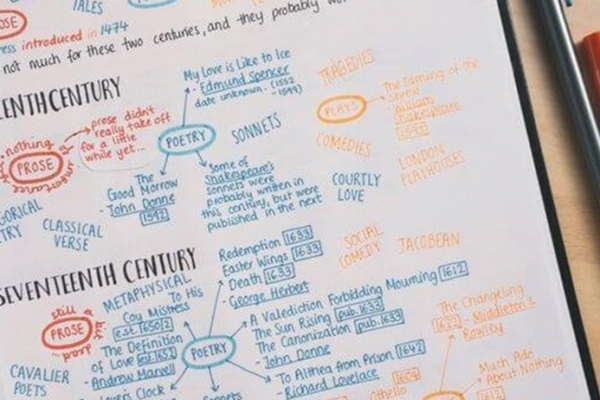 OSE
TALES
ness introduced in 1474
not much for these two centuries, and they probably
ENTHCENTURY
nothing
PROSE
importance
prose didn't
really take off
for a little
while yet...
My Love is Like to Ice
- Edmund Spencer
date unknown. (1552
- 1599)
POETRY
SONNETS
The
Good Morrow
- John Donne
1592
Some of
Shakespeare's
sonnets were
probably written in
this century, but were
published in the next
TRAGEDIES
PLAYS
The Taming of the
Shrew
William
Shakespeare
COMEDIES
LONDON
PLAYHOUSES
COURTLY
LOVE
GORICAL
TRY
CLASSICAL
VERSE
SEVENTEENTH CENTURY
SOCIAL
COMEDY
JACOBEAN
Redemption 1633
Easter Wings 1633
Death 1633
- George Herbert
METAPHYSICAL
still a
PROSE
bit
dead
To His
Coy Mistress
est. 1650s
The Definition
of Love est. 1652
- Andrew Marvell
POETRY
A Valediction Forbidding Mourning 1612
The Sun Rising pub. 1633
The Canonization pub. 1633
- John Donne
To Althea from Prison 1642
- Richard Lovelace
CAVALIER
POETS
Clock
Sonnets
The Changeling
1622 - Middleton &
Rowley
Much Ado
About Nothing
Othello